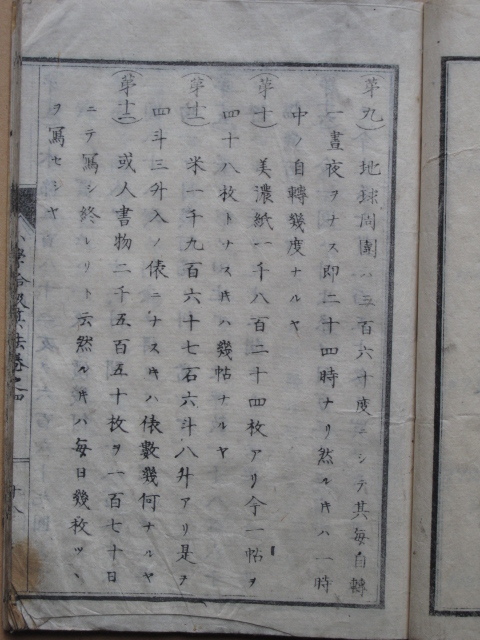 (第九) 地球周圍ハ三百六十度ニシテ其毎自轉
一晝夜ヲナス即二十四時ナリ然ル𪜈ハ一時
中ノ自轉幾度ナルヤ
(第十) 美濃紙一千八百二十四枚アリ今一帖ヲ
四十八枚トナス𪜈ハ幾帖ナルヤ
(第十一) 米一千九百六十七石六斗八升アリ是ヲ
四斗三升入ノ俵ニナス𪜈ハ俵數幾何ナルヤ
(第十二) 或人書物二千五百五十枚ヲ一百七十日
ニテ寫シ終レリト云然ル𪜈ハ毎日幾枚ツヽ
ヲ寫セシヤ
小學合級算法卷之四
十八